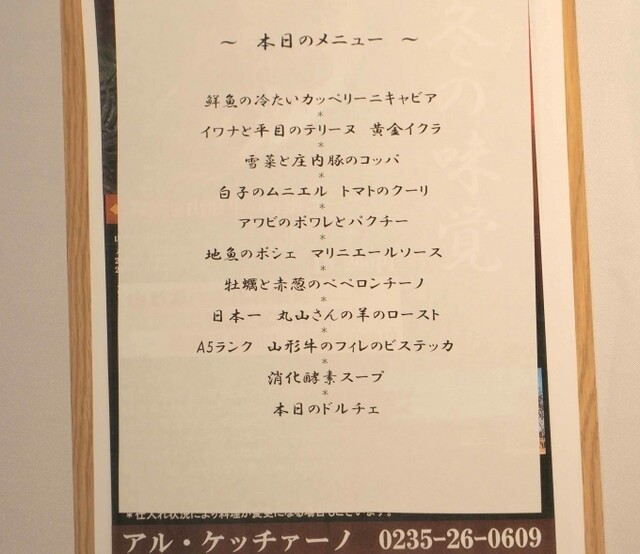 ～ 本日のメニュー ～
鮮魚の冷たいカッペリーニキャビア
*
イワナと平目のテリーヌ 黄金イクラ
*
雪菜と庄内豚のコッパ
*
白子のムニエル トマトのクーリ
*
アワビのポワレとパクチー
*
地魚のポシェ マリニエールソース
*
牡蠣と赤葱のペペロンチーノ
*
日本一 丸山さんの羊のロースト
*
A5ランク 山形牛のフィレのビステッカ
*
消化酵素スープ
*
本日のドルチェ
冬の味覚
*仕入れ状況により料理が変更になる場合もございます。
アル・ケッチァーノ 0235-26-0609